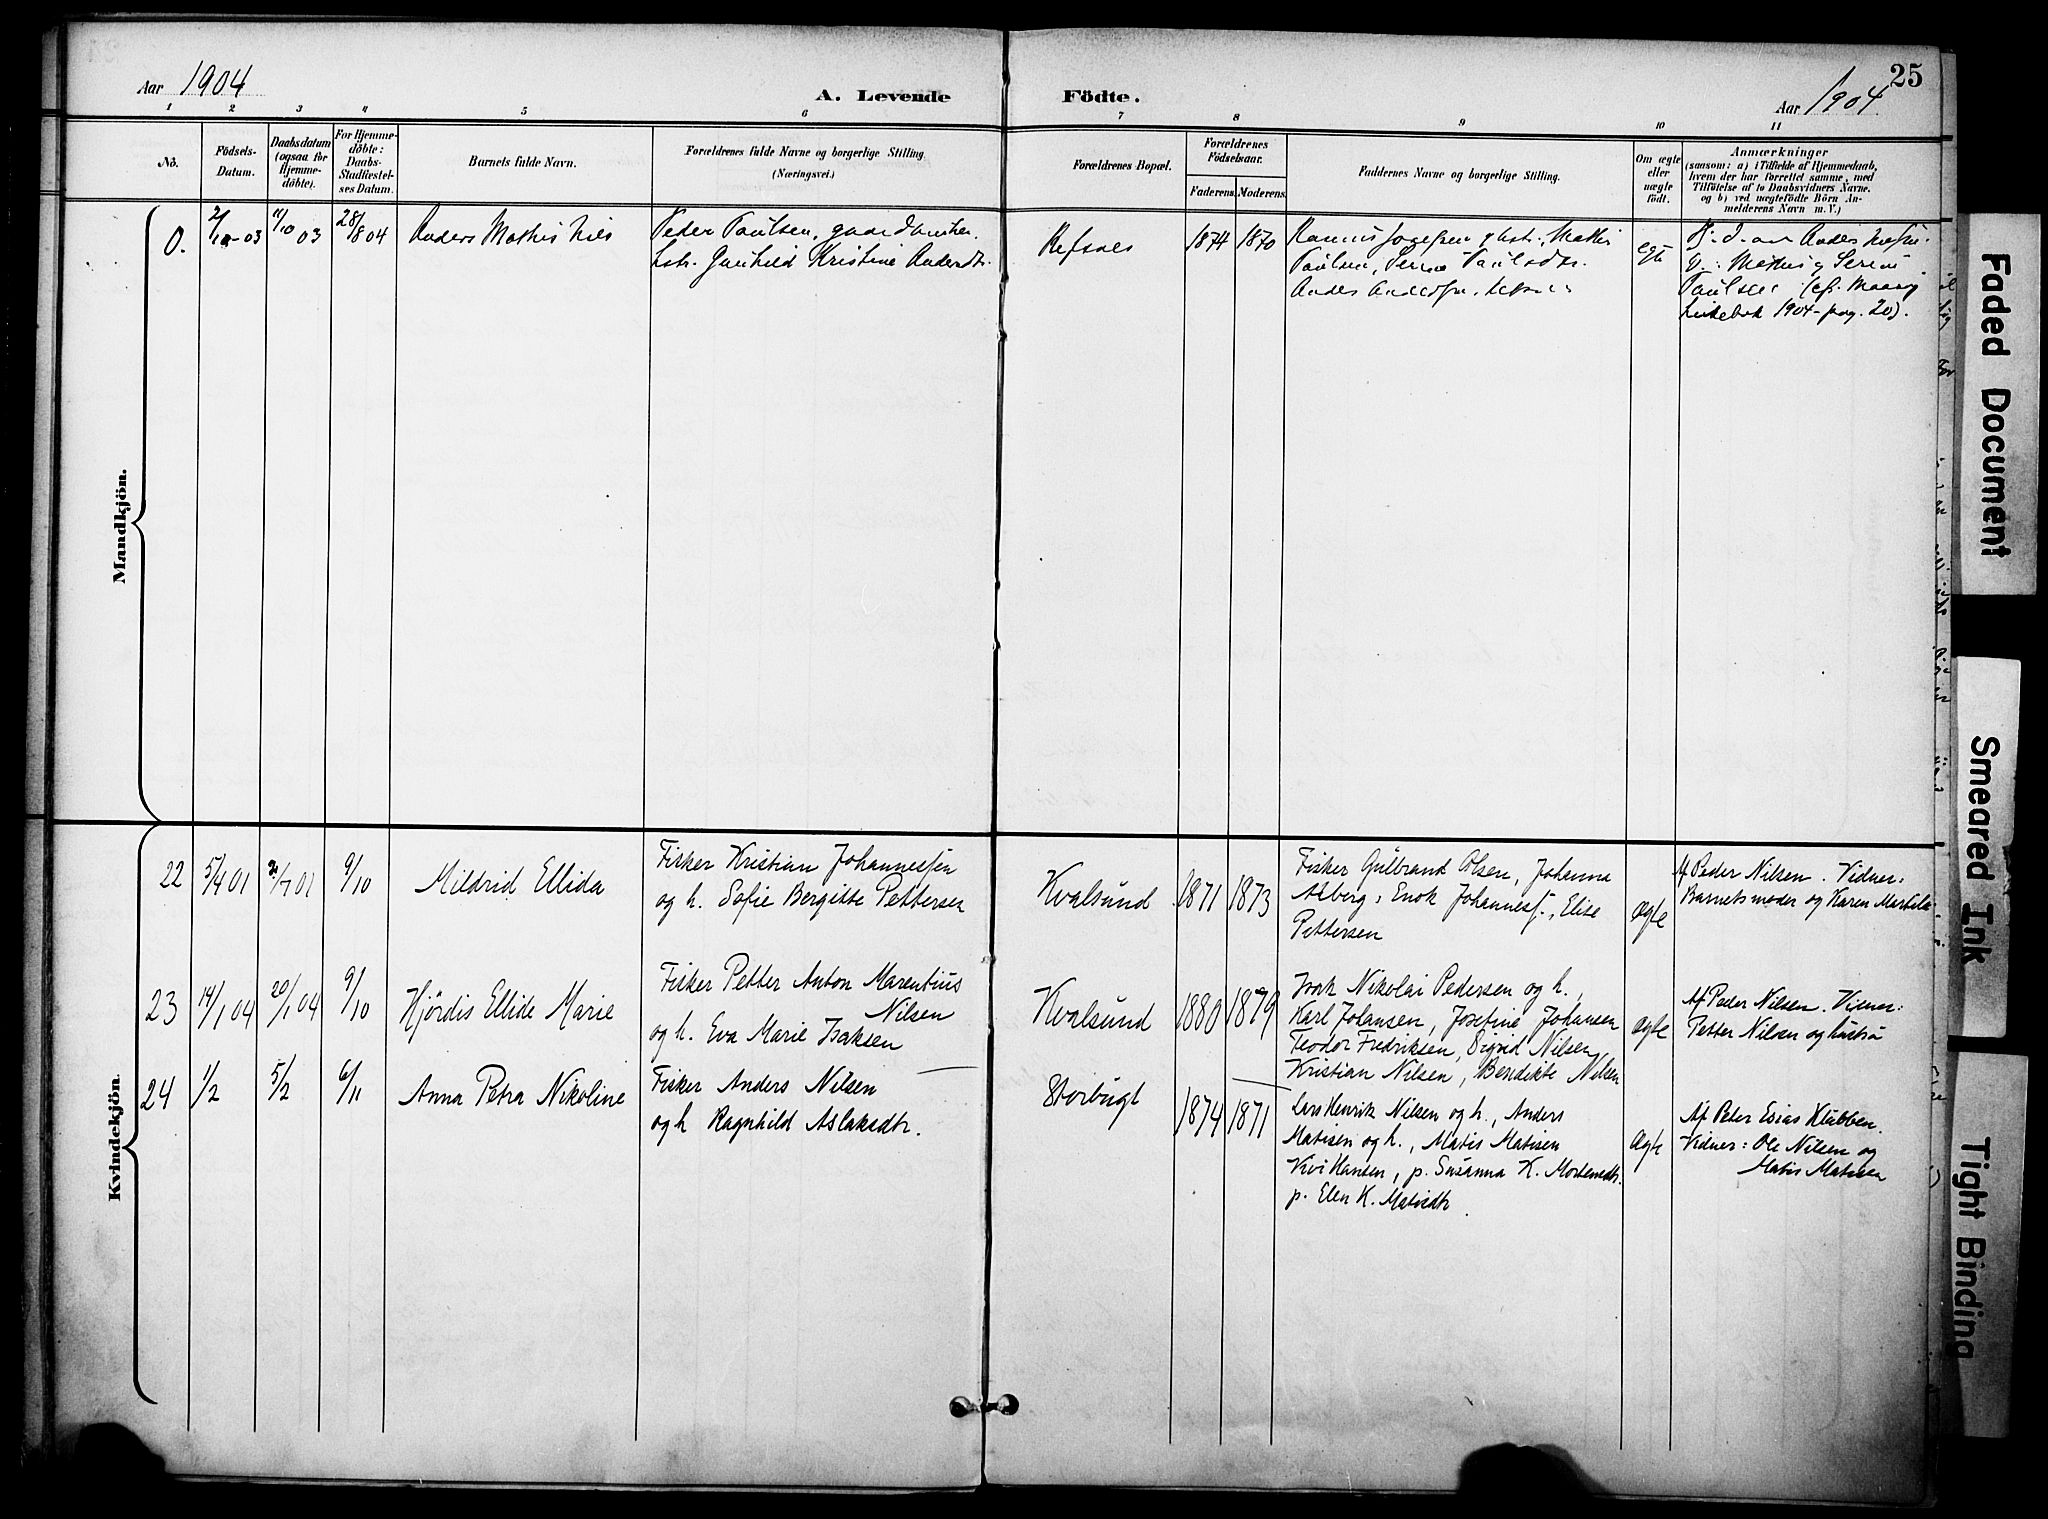 25
Aar 1904
A. Levende Födte.
Aar 1904
1 2 3 4 5 6 7 8 9 10 11
No.
Födsels-
Datum.
Daabsdatum
(ogsaa for
Hjemme-
döbte).
For Hjemme-
döbte:
Daabs-
Stadfæstel-
ses Datum.
Barnets fulde Navn.
Forældrenes fulde Navne og borgerlige Stilling.
(Næringsvei.)
Forældrenes Bopæl.
Forældrenes
Födselsaar.
Faderens. Moderens.
Faddernes Navne og borgerlige Stilling.
Om ægte
eller
uægte
födt.
Anmærkninger
(saasom: a) i Tilfælde af Hjemmedaab,
hvem der har forrettet samme, med
Tilföielse af to Daabsvidners Navne.
og b) ved uægtefödte Börn An-
melderens Navn m. V.)
Mandkjön.
0.
03
11/10 03
28/8 04
Anders Mathis Nils
Peder Paulsen, gaardbruker
hstr. Gunhild Kristine Andersdtr.
Refsnes
1874
1870
Rasmus Josefsen & hstr., Mathis
Paulsen, Paulsdtr.
Anders
egte
Anders
V: Mathis og
Paulsen (cfr. Maasø
kirkebok 1904 - pag. 20).
Kvindekjön.
22
5/4 01
9/10
Mildrid Ellida
Fisker Kristian Johannessen
og h. Sofie Bergitte Pettersen
Kvalsund
1871
1873
Fisker Gulbrand Olsen, Johanna
Asberg, Enok Johanness., Elise
Pettersen
ægte
Af Peder Nilsen. Vidner:
Barnets moder og Karen
23
14/1 04
20/1 04
9/10
Hjørdis Ellide Marie
Fisker Petter Anton Marentius
Nilsen
og h. Eva Marie Isaksen
Kvalsund
1880
1879
Nikolai Pedersen og h.,
Karl Johansen, Josefine Johansen
Teodor Fredriksen, Sigrid Nilsen,
Kristian Nilsen, Bendikte Nilsen
ægte
Af Peder Nilsen. Vidner:
Petter Nilsen og hustru
24
1/2
5/2
6/11
Anna Petra Nikoline
Fisker Anders Nilsen
og h Ragnhild Aslaksdtr.
Storbugt
1874
1871
Lars Henrik Nilsen og h., Anders
Matisen og h., Matis Matisen
Hansen, p. Susanna K. Mortensdtr.
p. Elen K. Matisdtr.
ægte
Af Peter Esias Klubben.
Vidner: Ole Nilsen og
Matis Matisen
Faded Document
Smeared Ink
Tight Binding